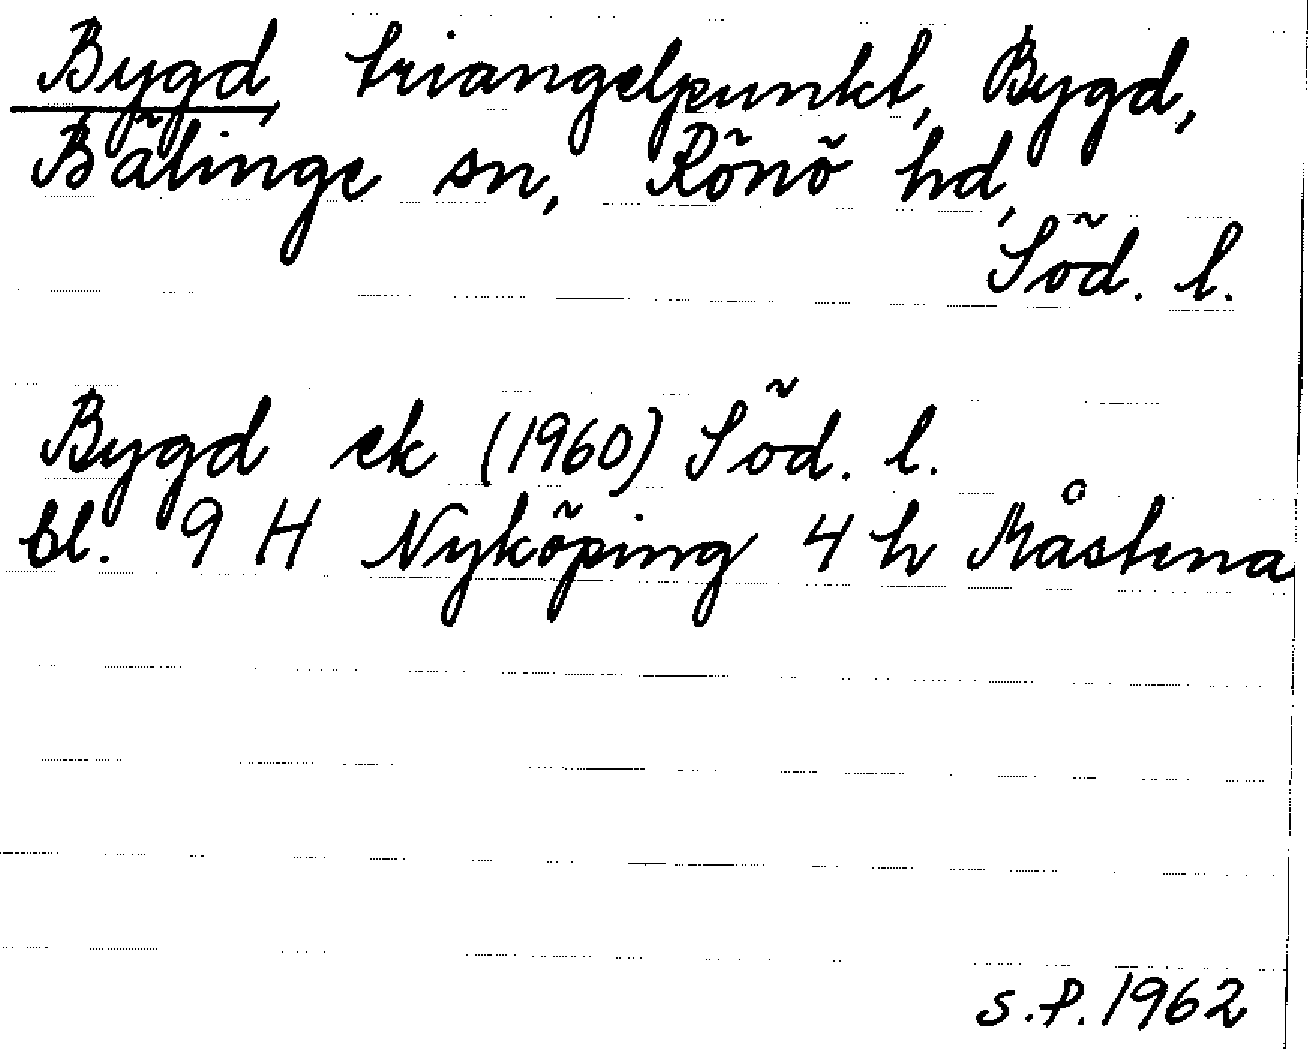 Bygd, triangelpunkt, Bygd,
Bälinge sn, Rönö hd,
Söd. l.
Bygd ek (1960) Söd. l.
bl. 9 H Nyköping 4 h Måstena
S.P. 1962